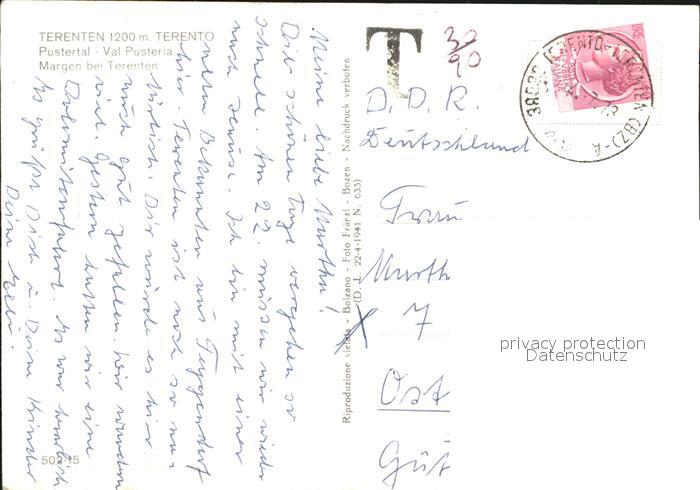 TERENTEN 1200 m. TERENTO
Pustertal - Val Pusteria
Margen bei Terenten
Meine liebe Marthn!
Die schönen Tage vergehen so
schnell. Am 22. müssen wir wieder
nach Hause. Ich bin mit einer
netten Bekannten aus
hier. Terenten ist noch so na-
türlich. Dir würde es hier
auch gut gefallen. Wir wandern
viel. Gestern hatten wir eine
Dolomitenfahrt. Es war herrlich
Es grüßt Dich u. Deine Kinder
Deine
502-15
Riproduzione vietata - Bolzano - Foto Fränzl - Bozen - Nachdruck verboten
(D. L. 22-4-1941 N. 633)
T
30
90
38030 TERENTO-TERENTEN (BZ)
D. D. R.
Deutschland
Frau
Marth
X 7
Ost
Güt
privacy protection
Datenschutz